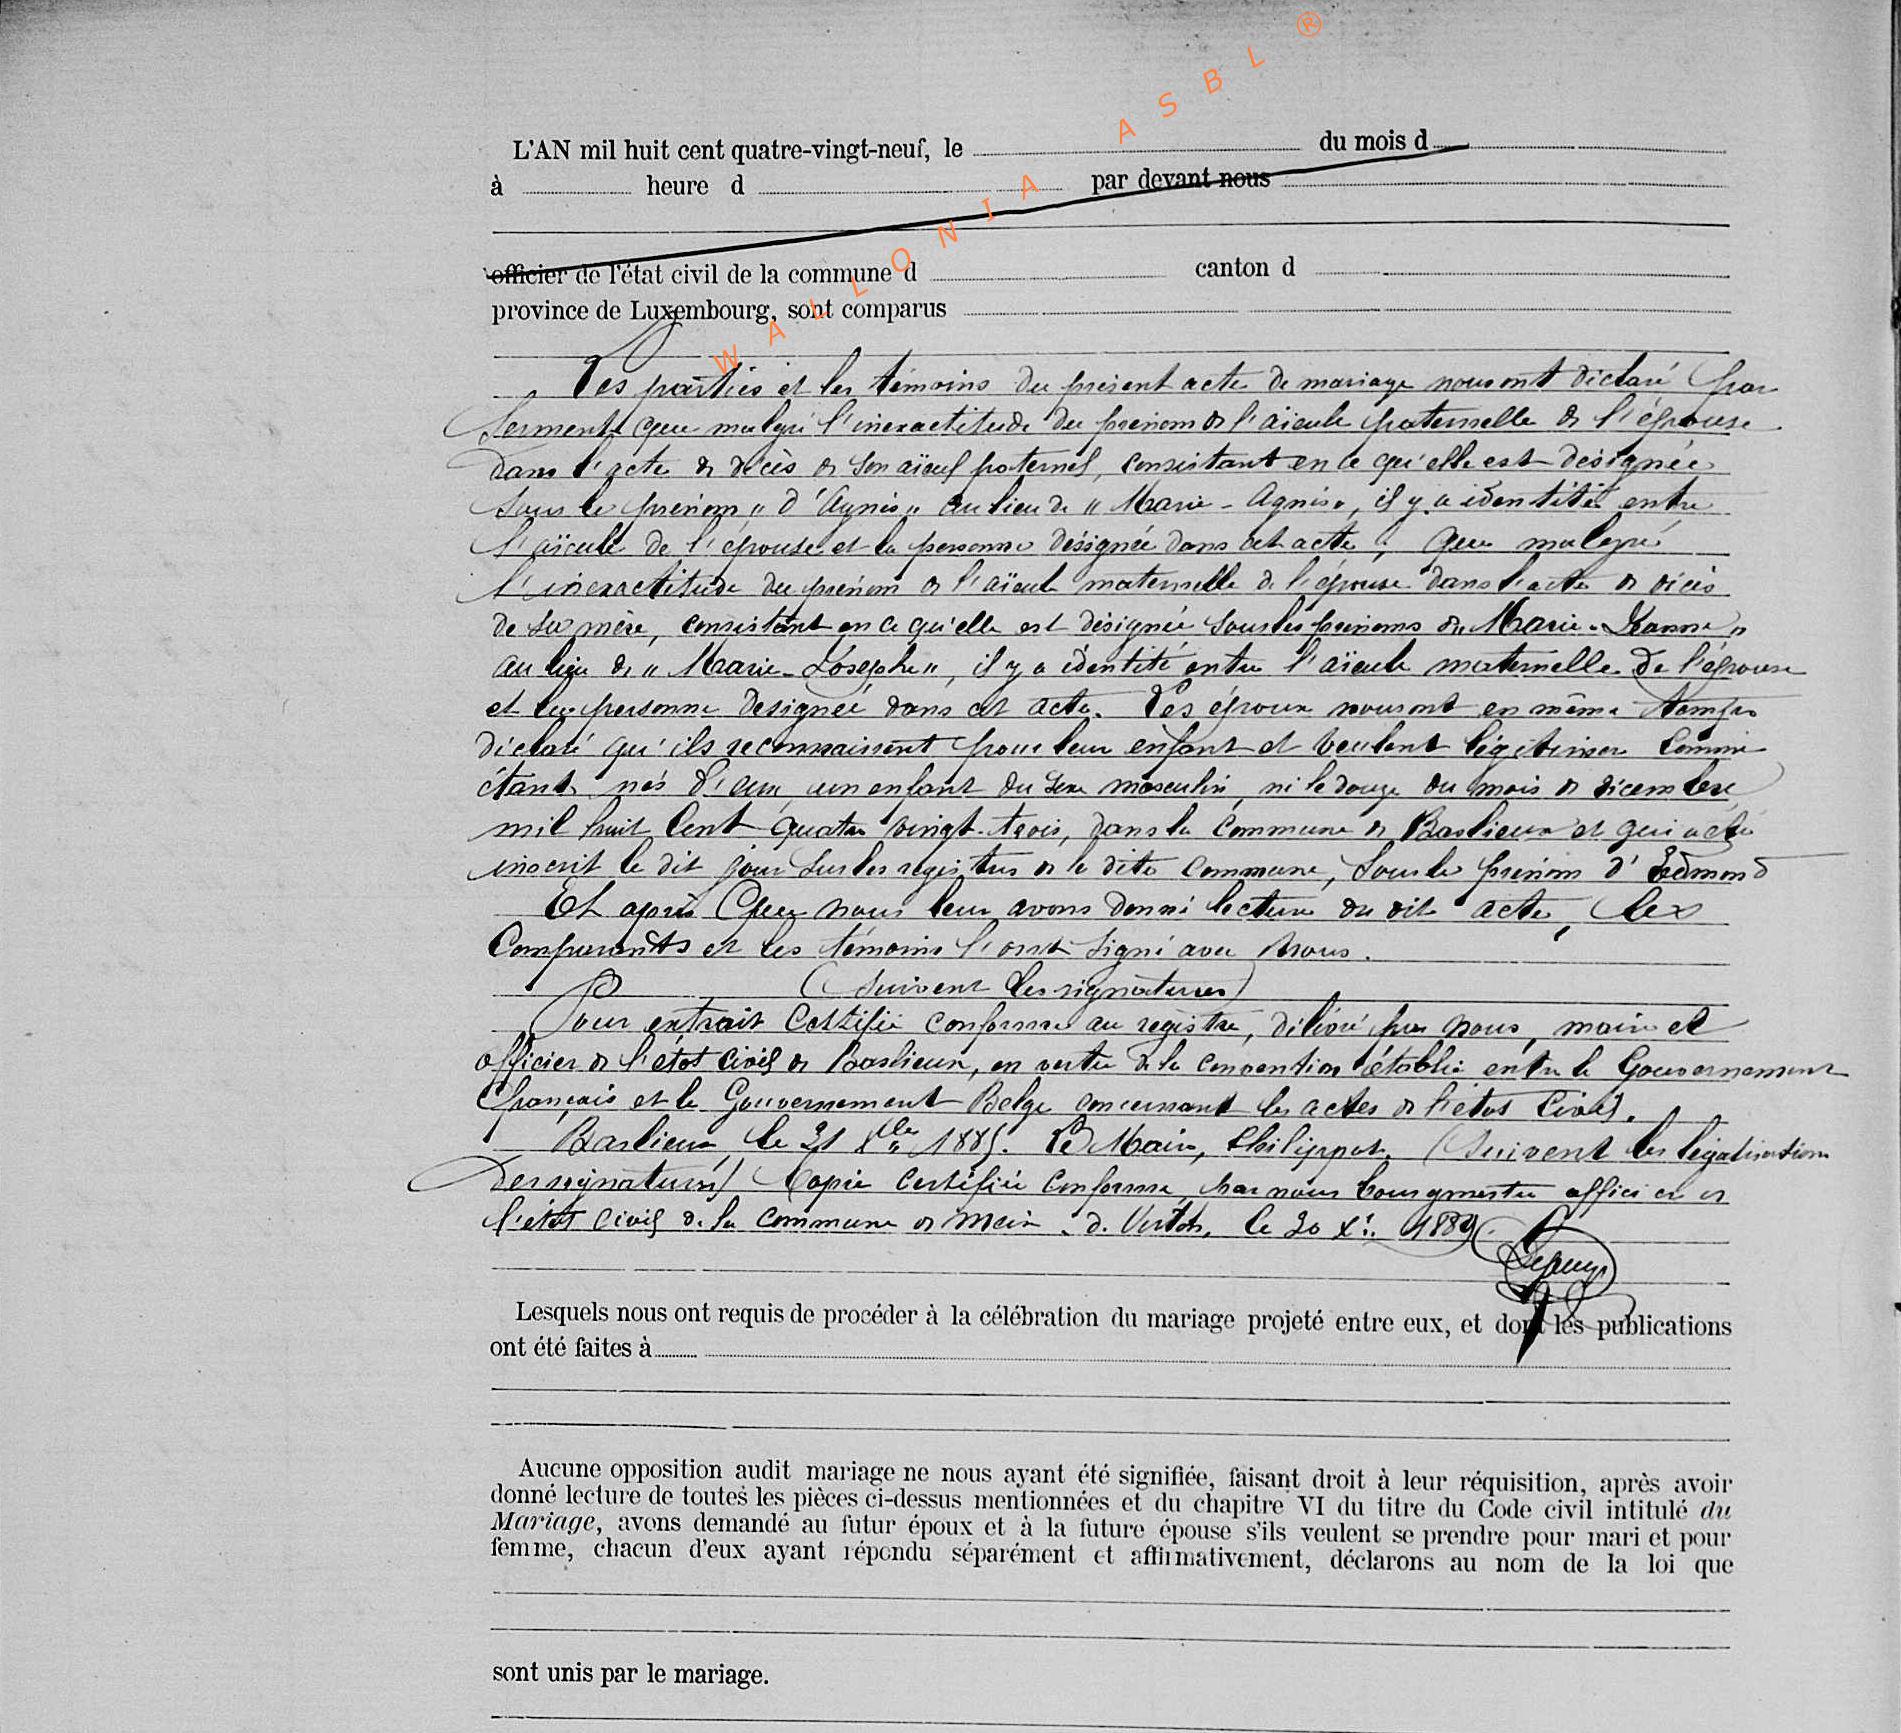 L'AN mil huit cent quatre-vingt-neuf, le du mois d
à heure d par devant nous
officier de l'état civil de la commune d canton d
province de Luxembourg, sont comparus
WALLONIA ASBL ®
Les parties et les témoins du présent acte de mariage nous ont déclaré par
serment que malgré l'inexactitude du prénom de l'aïeule paternelle de l'épouse
dans l'acte de décès de son aïeul paternel, consistant en ce qu'elle est désignée
sous le prénom " d'Agnès " au lieu de " Marie - Agnès ", il y a identité entre
l'aïeule de l'épouse et la personne désignée dans cet acte ; que malgré
l'inexactitude du prénom de l'aïeule maternelle de l'épouse dans l'acte de décès
de sa mère, consistant en ce qu'elle est désignée sous les prénoms de " Marie - Jeanne "
au lieu de " Marie - Josèphe ", il y a identité entre l'aïeule maternelle de l'épouse
et la personne désignée dans cet acte. Les époux nous ont en même temps
déclaré qu'ils reconnaissent pour leur enfant et veulent légitimer comme
étant nés d'eux, un enfant du sexe masculin, né le douze du mois de décembre
mil huit cent quatre vingt-trois, dans la commune de Baslieux et qui a été
inscrit le dit jour sur les registres de la dite commune, sous le prénom d'Edmond
Et après que nous leur avons donné lecture du dit acte, les
Comparants et les témoins l'ont signé avec nous.
(Suivent les signatures)
Pour extrait certifié conforme au registre, délivré par nous, maire et
officier de l'état civil de Baslieux, en vertu de la convention établie entre le Gouvernement
français et le Gouvernement Belge concernant les actes de l'état civil.
Baslieux, le 21 Xbre 1885. Le Maire, Philippot. (Suivent les légalisations
des signatures) Copie certifiée conforme par nous bourgmestre officier de
l'état civil de la commune de d. Virton, le 20 1889.
Lesquels nous ont requis de procéder à la célébration du mariage projeté entre eux, et dont les publications
ont été faites à
Aucune opposition audit mariage ne nous ayant été signifiée, faisant droit à leur réquisition, après avoir
donné lecture de toutes les pièces ci-dessus mentionnées et du chapitre VI du titre du Code civil intitulé du
Mariage, avons demandé au futur époux et à la future épouse s'ils veulent se prendre pour mari et pour
femme, chacun d'eux ayant répondu séparément et affirmativement, déclarons au nom de la loi que
sont unis par le mariage.